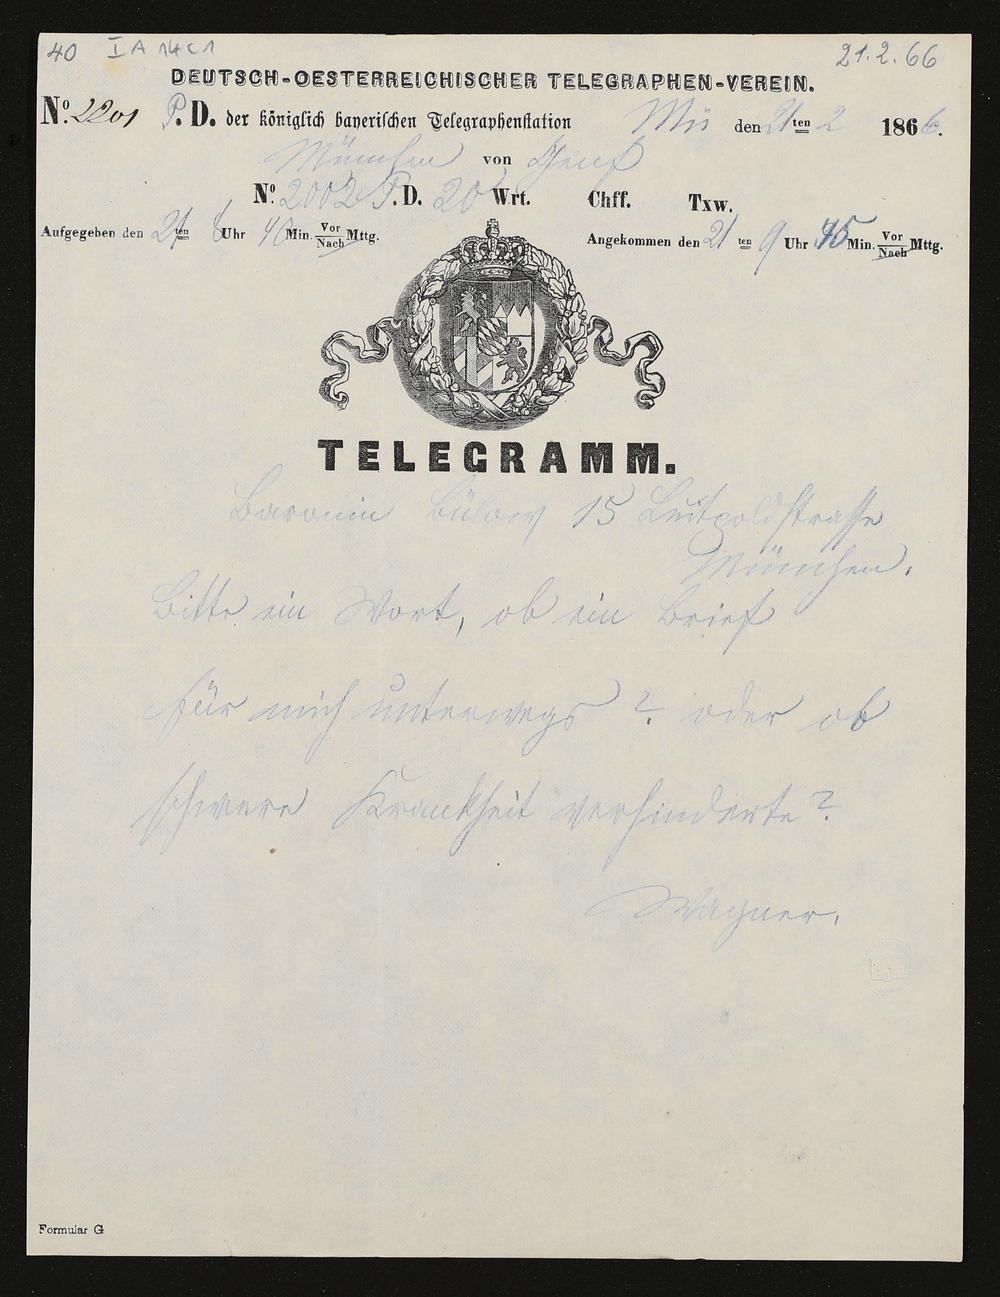 40 I A 14 c 1 21.2.66
DEUTSCH-OESTERREICHISCHER TELEGRAPHEN-VEREIN.
No. 2201 P. D. der königlich bayerischen Telegraphenstation Mü den 21ten 2 1866.
München von Genf
No. 2002 P. D. 20 Wrt. Chff. Txw.
Aufgegeben den 21ten 8 Uhr 40 Min. Vor/Nach Mttg. Angekommen den 21ten 9 Uhr 45 Min. Vor/Nach Mttg.
TELEGRAMM.
Baronin Bülow 15 Luitpoldstrasse
München.
Bitte ein Wort, ob ein Brief
für mich unterwegs? oder ob
schwere Krankheit verhinderte?
Wagner.
Formular G